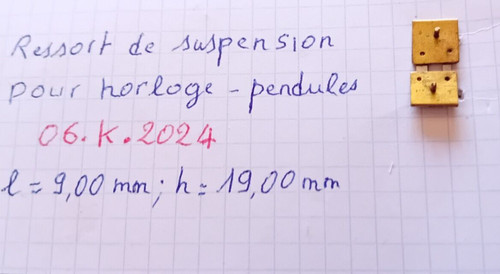 Ressort de suspension
pour horloge - pendules
06.K.2024
l = 9,00 mm ; h = 19,00 mm